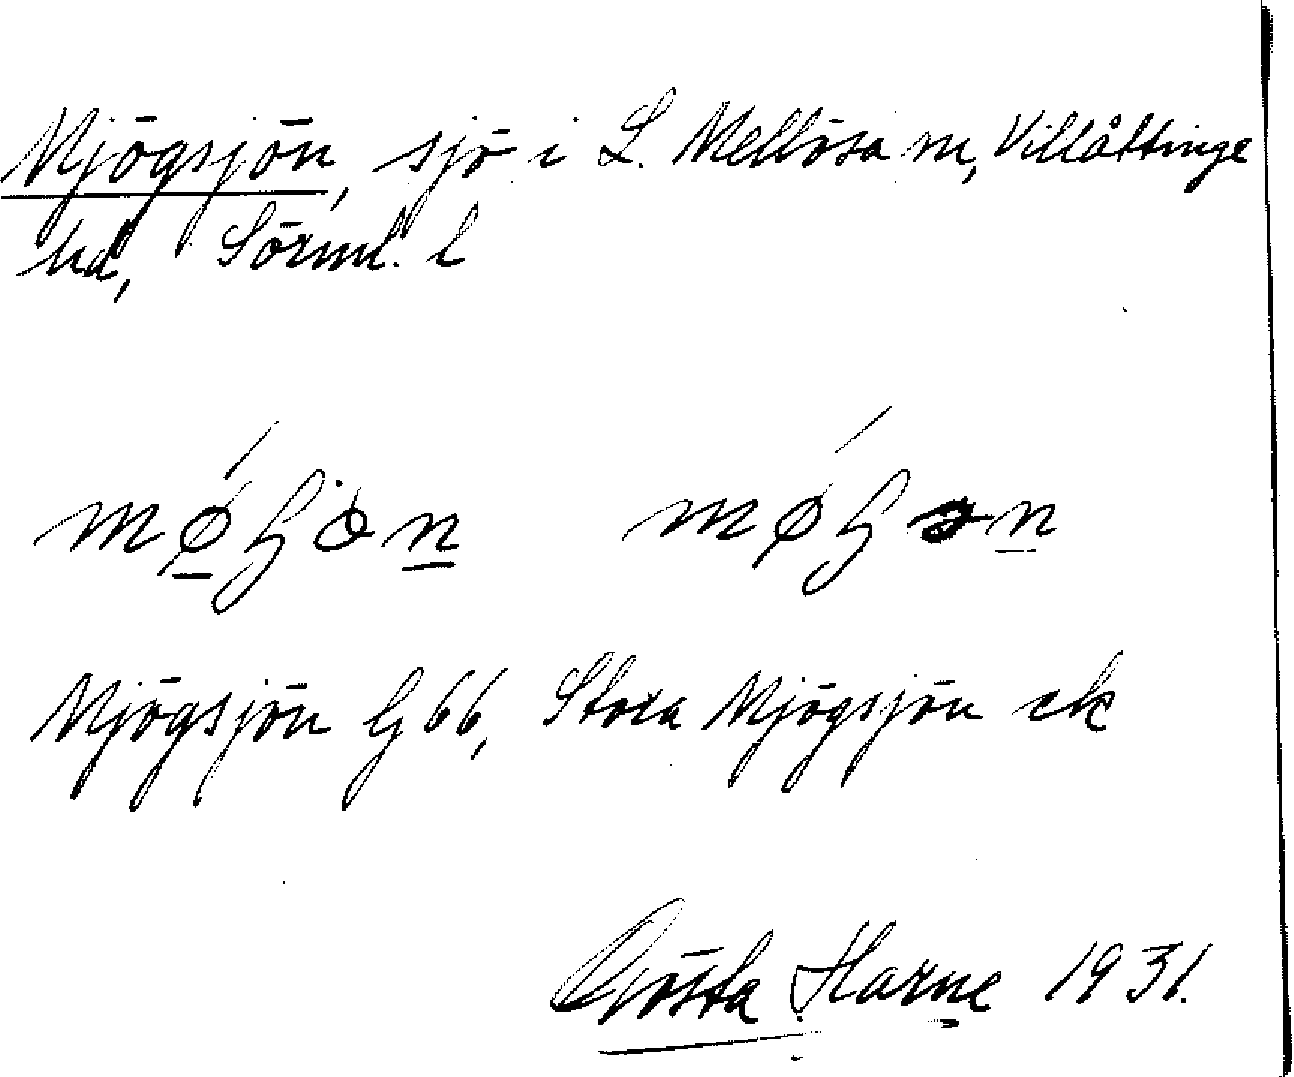 Mjögsjön, sjö i L. Mellösa sn, Villåttinge
hd, Sörml. l
Mjögsjön G 66, Stora Mjögsjön ek
Gösta Harne 1931.